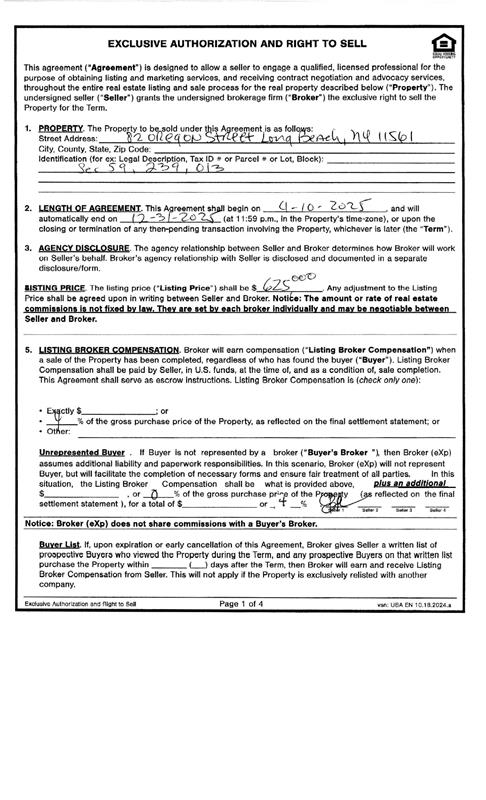 EXCLUSIVE AUTHORIZATION AND RIGHT TO SELL
EQUAL HOUSING
OPPORTUNITY
This agreement ("Agreement") is designed to allow a seller to engage a qualified, licensed professional for the
purpose of obtaining listing and marketing services, and receiving contract negotiation and advocacy services,
throughout the entire real estate listing and sale process for the real property described below ("Property"). The
undersigned seller ("Seller") grants the undersigned brokerage firm ("Broker") the exclusive right to sell the
Property for the Term.
1. PROPERTY. The Property to be sold under this Agreement is as follows:
Street Address: 82 Oregon Street Long Beach, NY 11561
City, County, State, Zip Code:
Identification (for ex: Legal Description, Tax ID # or Parcel # or Lot, Block):
Sec 59, 239, 013
2. LENGTH OF AGREEMENT. This Agreement shall begin on 4-10-2025, and will
automatically end on 12-31-2025 (at 11:59 p.m., in the Property's time-zone), or upon the
closing or termination of any then-pending transaction involving the Property, whichever is later (the "Term").
3. AGENCY DISCLOSURE. The agency relationship between Seller and Broker determines how Broker will work
on Seller's behalf. Broker's agency relationship with Seller is disclosed and documented in a separate
disclosure/form.
LISTING PRICE. The listing price ("Listing Price") shall be $ 625000. Any adjustment to the Listing
Price shall be agreed upon in writing between Seller and Broker. Notice: The amount or rate of real estate
commissions is not fixed by law. They are set by each broker individually and may be negotiable between
Seller and Broker.
5. LISTING BROKER COMPENSATION. Broker will earn compensation ("Listing Broker Compensation") when
a sale of the Property has been completed, regardless of who has found the buyer ("Buyer"). Listing Broker
Compensation shall be paid by Seller, in U.S. funds, at the time of, and as a condition of, sale completion.
This Agreement shall serve as escrow instructions. Listing Broker Compensation is (check only one):
• Exactly $____; or
• 4% of the gross purchase price of the Property, as reflected on the final settlement statement; or
• Other:
Unrepresented Buyer . If Buyer is not represented by a broker ("Buyer's Broker "), then Broker (eXp)
assumes additional liability and paperwork responsibilities. In this scenario, Broker (eXp) will not represent
Buyer, but will facilitate the completion of necessary forms and ensure fair treatment of all parties. In this
situation, the Listing Broker Compensation shall be what is provided above, plus an additional
$____, or 0 % of the gross purchase price of the Property (as reflected on the final
settlement statement ), for a total of $____ or 4 %
Seller 1 Seller 2 Seller 3 Seller 4
Notice: Broker (eXp) does not share commissions with a Buyer's Broker.
Buyer List. If, upon expiration or early cancellation of this Agreement, Broker gives Seller a written list of
prospective Buyers who viewed the Property during the Term, and any prospective Buyers on that written list
purchase the Property within ____ (__) days after the Term, then Broker will earn and receive Listing
Broker Compensation from Seller. This will not apply if the Property is exclusively relisted with another
company.
Exclusive Authorization and Right to Sell
Page 1 of 4
van: USA EN 10.18.2024.a